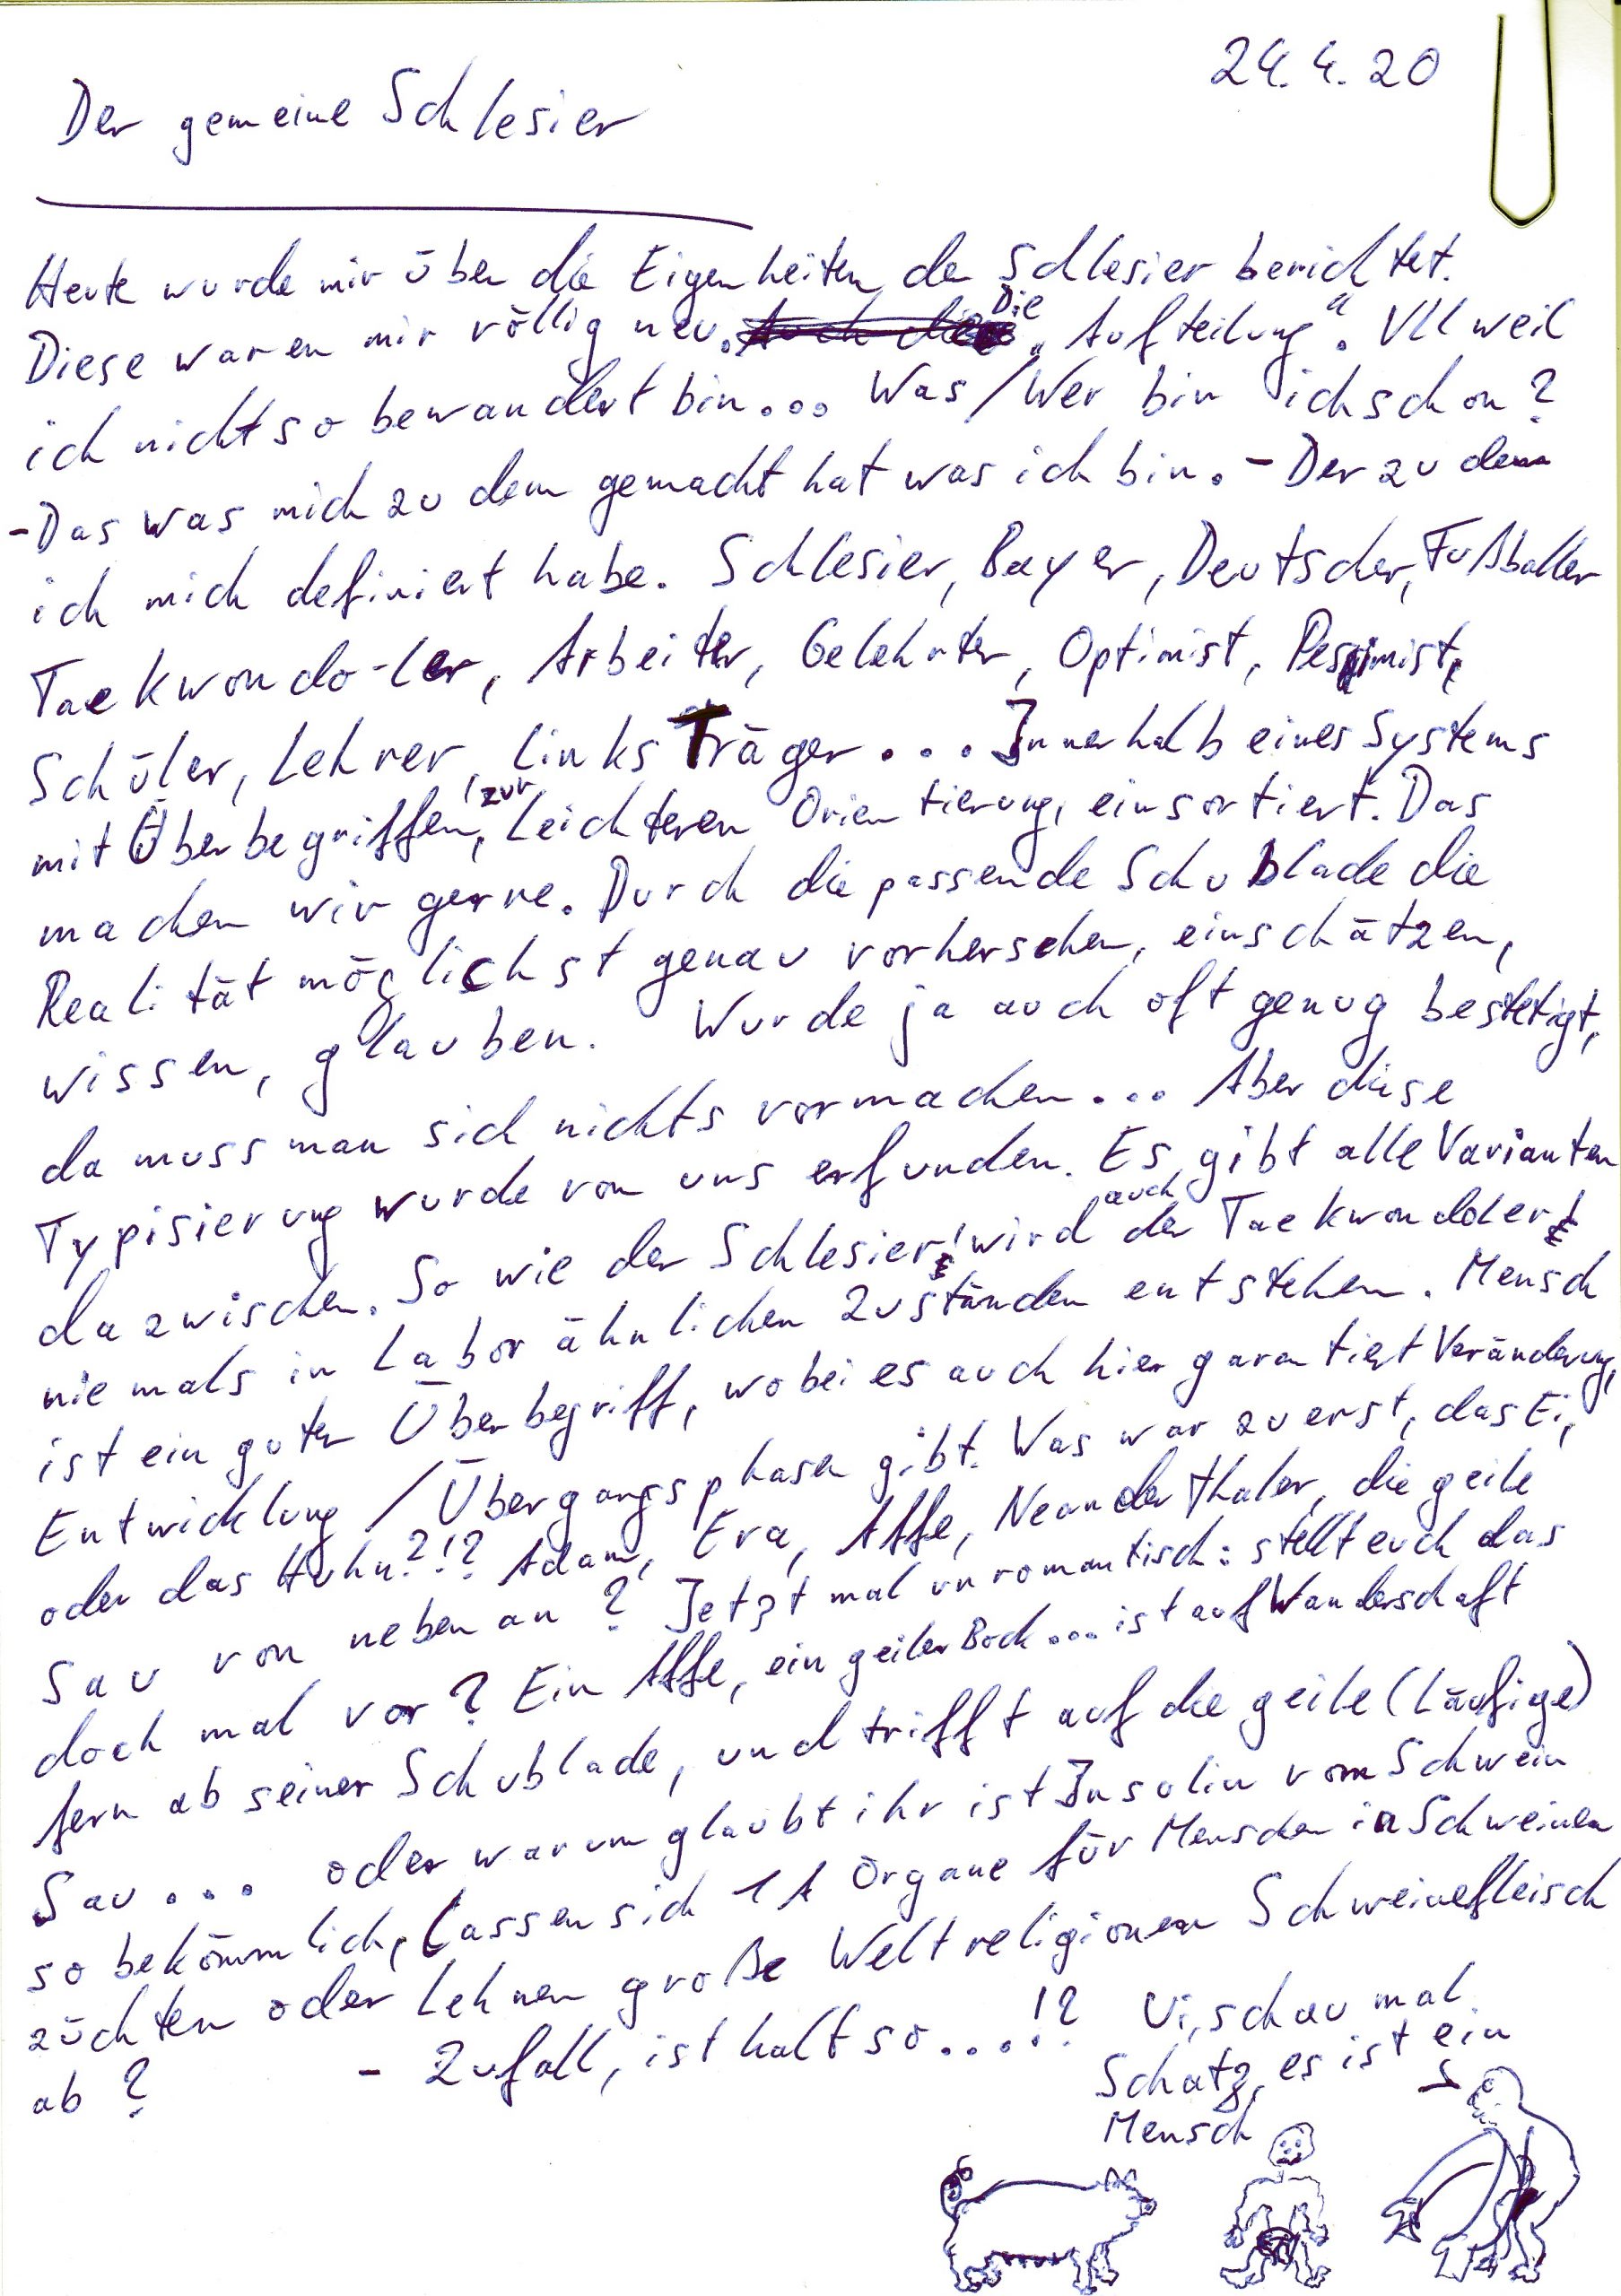 24.4.20
Der gemeine Schlesier
Heute wurde mir über die Eigenheiten der Schlesier berichtet.
Diese waren mir völlig neu. Die „Aufteilung“. Vll weil
ich nicht so bewandert bin... Was/Wer bin ich schon?
- Das was mich zu dem gemacht hat was ich bin. - Der zu dem
ich mich definiert habe. Schlesier, Bayer, Deutscher, Fußballer
Taekwondo-ler, Arbeiter, Gelehrter, Optimist, Pessimist,
Schüler, Lehrer, links Träger... Innerhalb eines Systems
mit Überbegriffen, zur leichteren Orientierung, einsortiert. Das
machen wir gerne. Durch die passende Schublade die
Realität möglichst genau vorhersehen, einschätzen,
wissen, glauben. Wurde ja auch oft genug bestetigt,
da muss man sich nichts vormachen... Aber diese
Typisierung wurde von uns erfunden. Es gibt alle Varianten
dazwischen. So wie der Schlesier, wird auch der Taekwondoler
niemals in Labor ähnlichen Zuständen entstehen. Mensch
ist ein guter Überbegriff, wobei es auch hier garantiert Veränderung,
Entwicklung / Übergangsphasen gibt. Was war zuerst, das Ei,
oder das Huhn?!? Adam, Eva, Affe, Neanderthaler, die geile
Sau von nebenan? Jetzt mal unromantisch: stellt euch das
doch mal vor? Ein Affe, ein geiler Bock... ist auf Wanderschaft
fern ab seiner Schublade, und trifft auf die geile (Läufige)
Sau... oder warum glaubt ihr ist Insulin vom Schwein
so bekömmlich, lassen sich 1A Organe für Menschen in Schweinen
züchten oder lehnen große Weltreligionen Schweinefleisch
ab? - Zufall, ist halt so....!?
Ui, schau mal
Schatz, es ist ein
Mensch